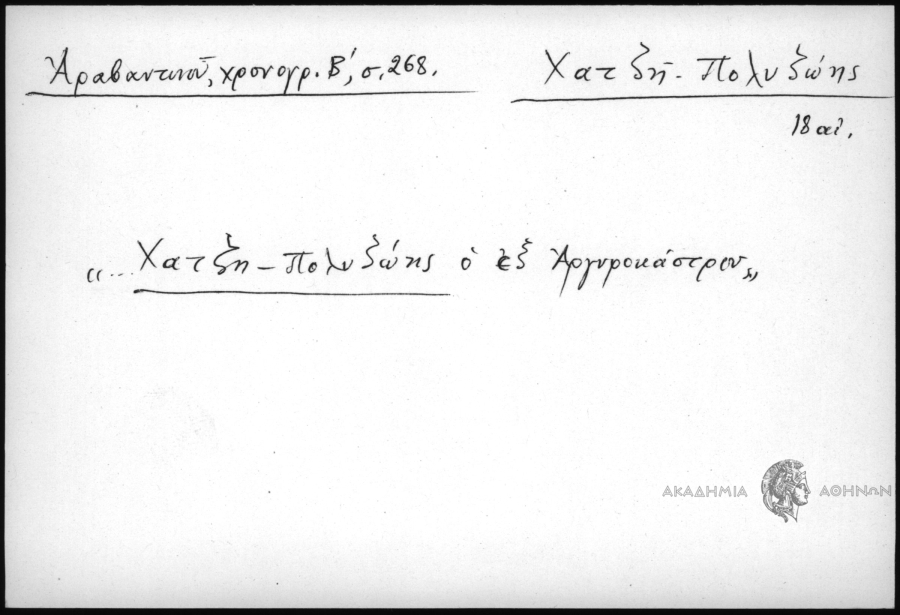 Ἀραβαντινοῦ, χρονογρ. Β΄, σ. 268.
Χατζῆ - Πολυζώης
18 αἰ.
«... Χατζῆ - Πολυζώης ὁ ἐξ Ἀργυροκάστρου»
ΑΚΑΔΗΜΙΑ ΑΘΗΝΩΝ